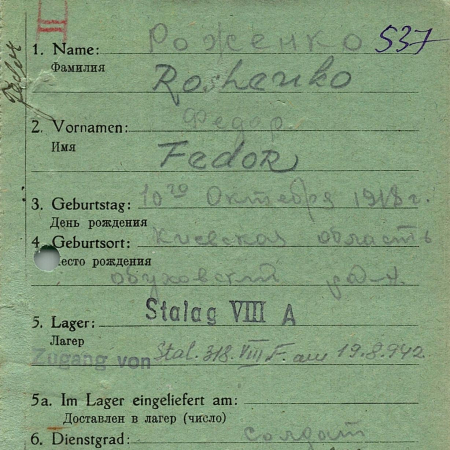 II
1. Name: Роженко 537
Фамилия
Roshenko
2. Vornamen: Федор
Имя
Fedor
3. Geburtstag: 10го Октября 1918 г.
День рождения
4. Geburtsort: Киевская область
Место рождения
обуховский р-н.
5. Lager: Stalag VIII A
Лагер
Zugang von Stal. 318. VIII F. am 19.8.942.
5a. Im Lager eingeliefert am:
Доставлен в лагер (число)
6. Dienstgrad: солдат